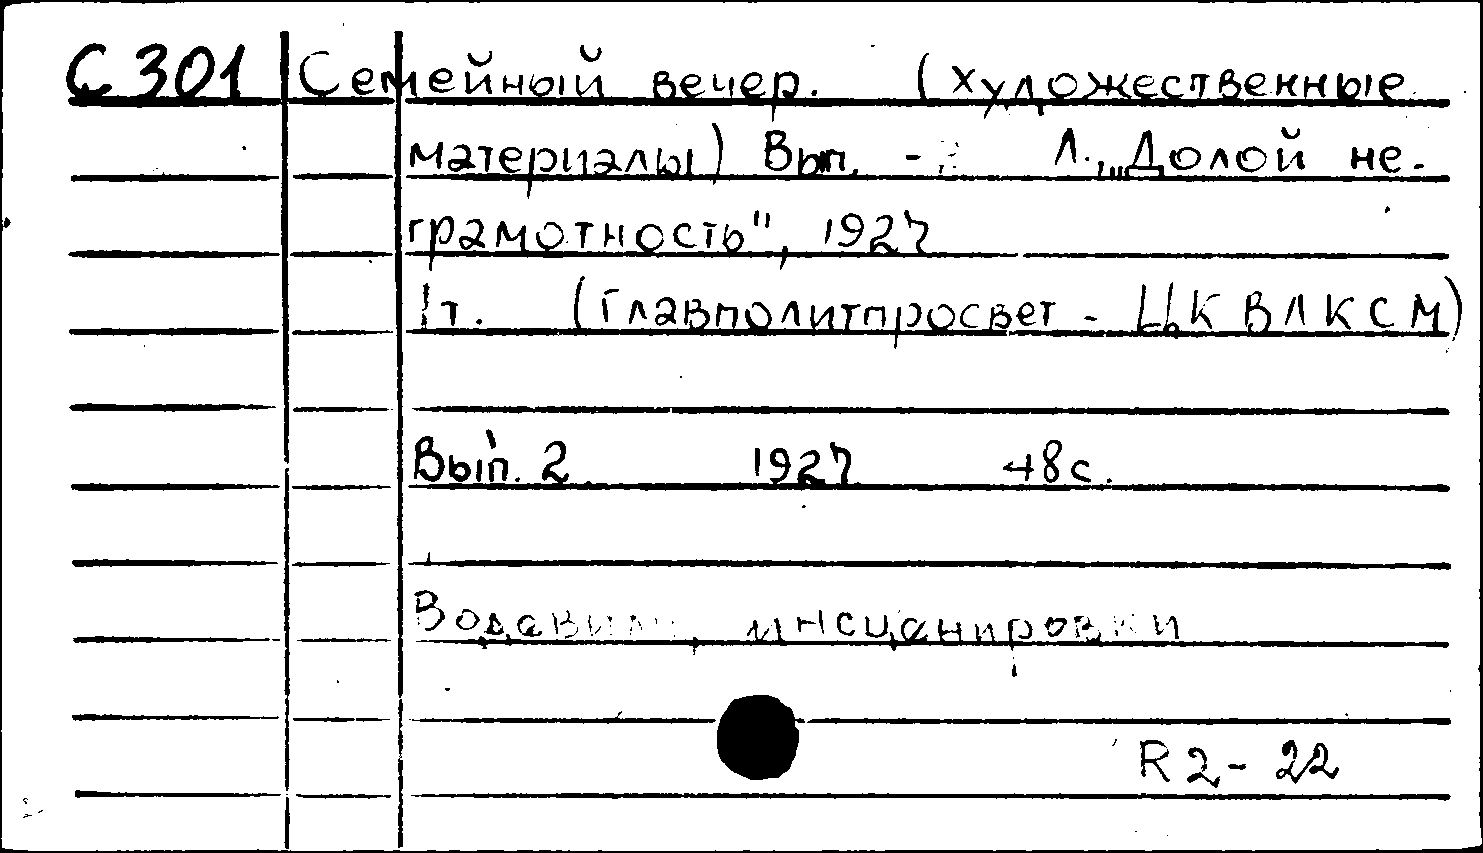 С 301 Семейный вечер. (художественные
материалы) Вып. - Л., „Долой не-
грамотность", 1927
1т. (Главполитпросвет - ЦК ВЛКСМ)
Вып. 2 1927 48с.
Водевили, инсценировки
R 2 - 22